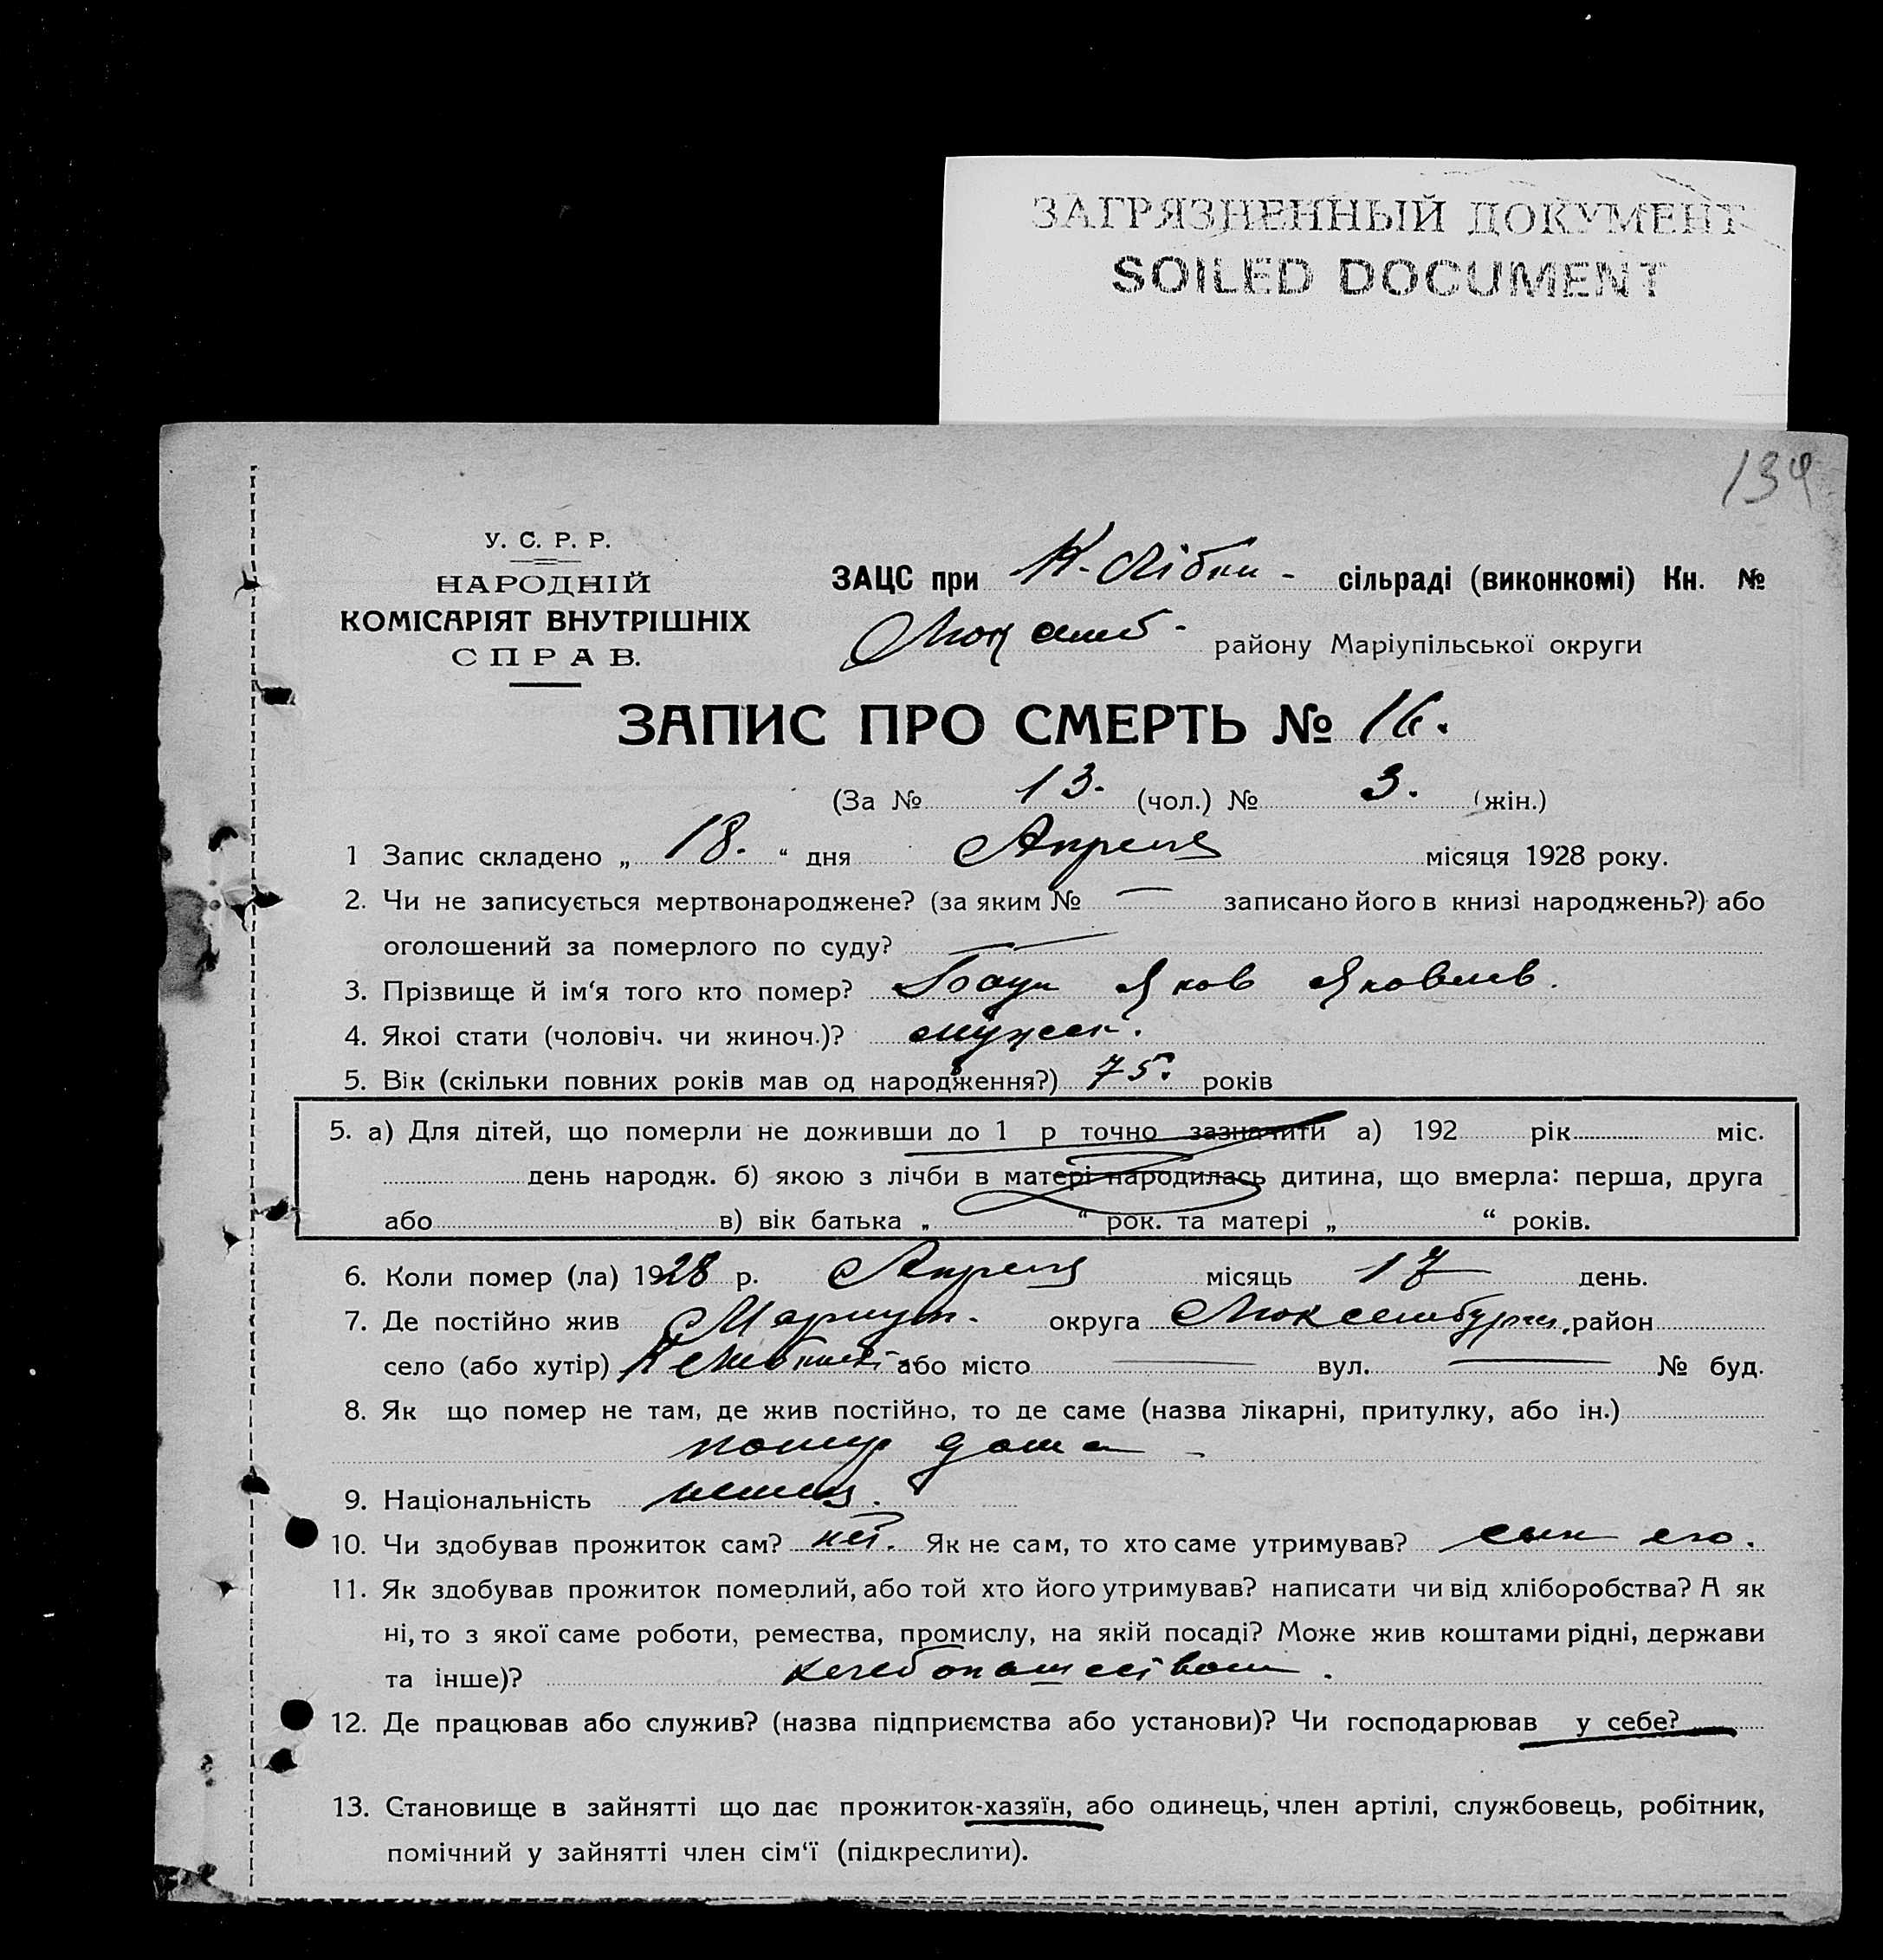 ЗАГРЯЗНЕННЫЙ ДОКУМЕНТ
SOILED DOCUMENT
139
У. С. Р. Р.
НАРОДНІЙ
КОМІСАРІЯТ ВНУТРІШНІХ
СПРАВ.
ЗАЦС при сільраді (виконкомі) Кн. №
району Маріупільської округи
ЗАПИС ПРО СМЕРТЬ № 16.
(За № 13. (чол.) № 3. (жін.)
1 Запис складено „ 18. “ дня Апреля місяця 1928 року.
2. Чи не записується мертвонароджене? (за яким № — записано його в книзі народжень?) або
оголошений за померлого по суду? —
3. Прізвище й ім‘я того кто помер? Баун Яков Яковлев.
4. Якоі стати (чоловіч. чи жиноч.)? мужск.
5. Вік (скільки повних років мав од народження?) 75. років
5. а) Для дітей, що померли не доживши до 1 р точно зазначити а) 192 рік міс.
день народж. б) якою з лічби в матері народилась дитина, що вмерла: перша, друга
або в) вік батька „ “ рок. та матері „ “ років.
6. Коли помер (ла) 1928 р. Апреля місяць 17 день.
7. Де постійно жив Мариуп. округа Люксембургск. район
село (або хутір) або місто — вул. — № буд.
8. Як що помер не там, де жив постійно, то де саме (назва лікарні, притулку, або ін.)
помер дома
9. Національність немец.
10. Чи здобував прожиток сам? нет. Як не сам, то хто саме утримував? сын его.
11. Як здобував прожиток померлий, або той хто його утримував? написати чи від хліборобства? А як
ні, то з якої саме роботи, ремества, промислу, на якій посаді? Може жив коштами рідні, держави
та інше)? хлебопашеством.
12. Де працював або служив? (назва підприємства або установи)? Чи господарював у себе?
13. Становище в зайнятті що дає прожиток-хазяїн, або одинець, член артілі, службовець, робітник,
помічний у зайнятті член сім‘ї (підкреслити).